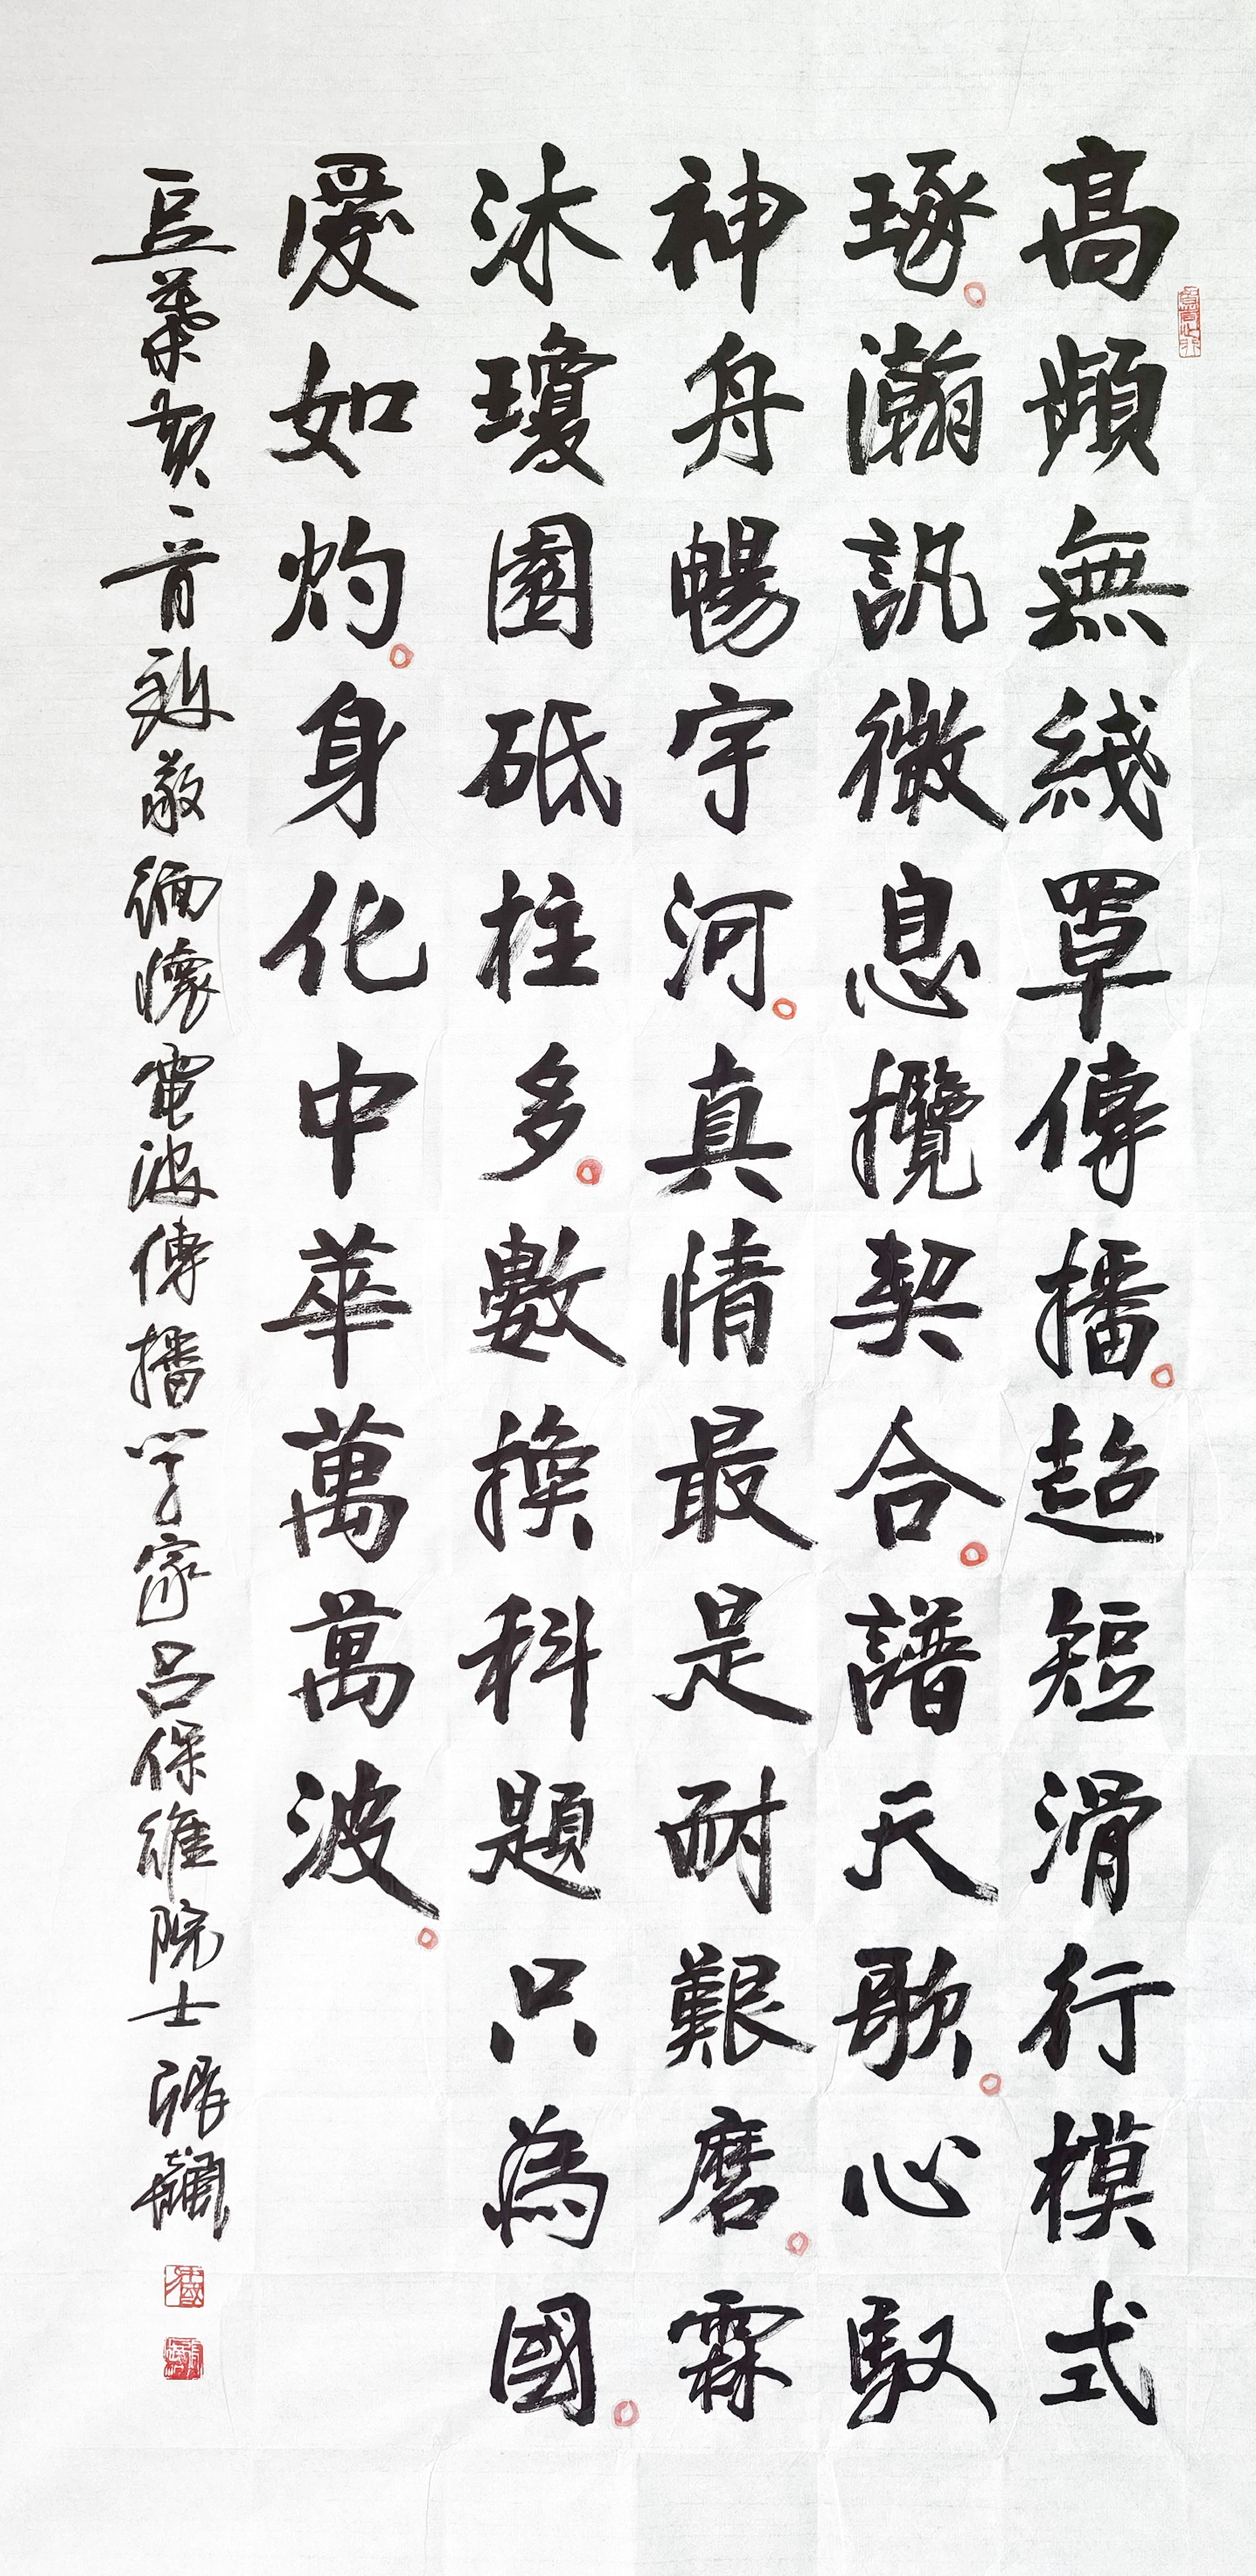 高頻無綫罩傳播超短滑行模式
琢瀚訊微息攬契合譜天歌心馭
神舟暢宇河真情最是耐艱磨霖
沐瓊園砥柱多數換科題只為國
愛如灼身化中華萬萬波
豆葉黃二首致敬緬懷電波傳播學家呂保維院士